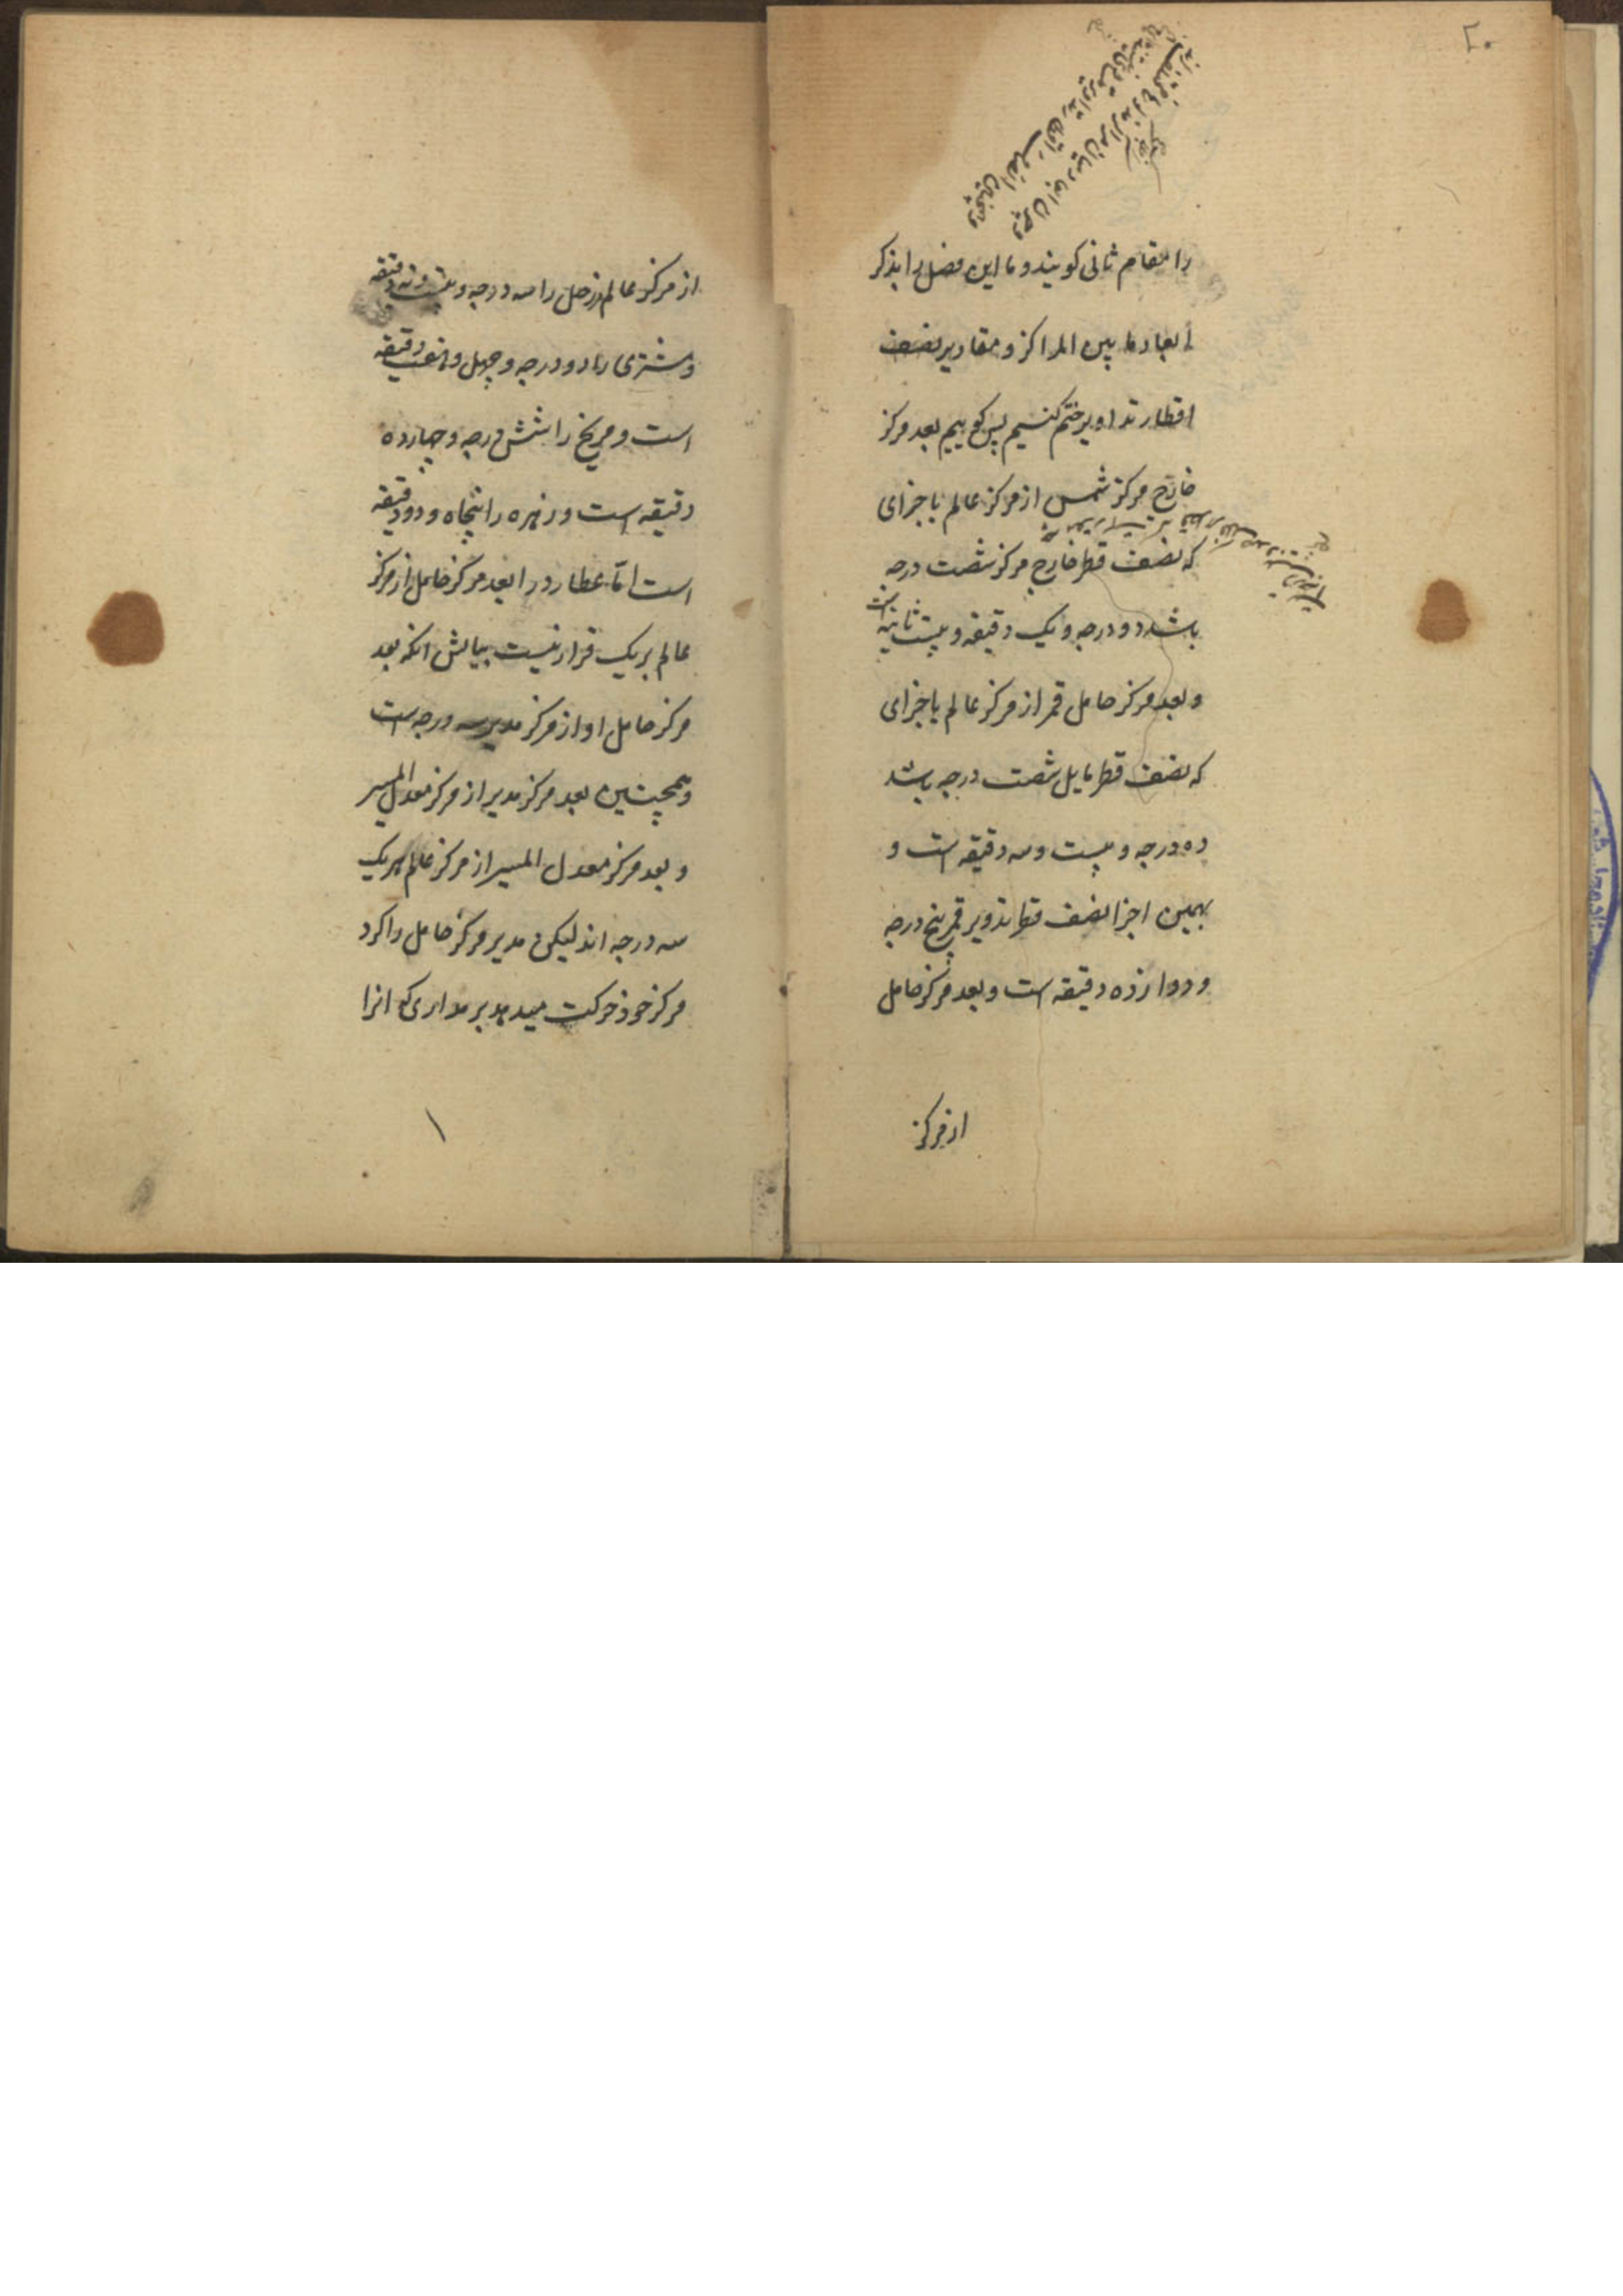 ۲۰
را مقام ثانی کویند و ما این فصل را بذکر
ابعاد ما بین المراکز و مقادیر نصف
اقطار تداویر ختم کنیم پس کوییم بعد مرکز
خارج مرکز شمس از مرکز عالم باجزای
که نصف قطر خارج مرکز شصت درجه
باشد دو درجه و یک دقیقه و بیست ثانیه است
و بعد مرکز حامل قمر از مرکز عالم باجزای
که نصف قطر مایل شصت درجه باشد
ده درجه و بیست و سه دقیقه است و
بهمین اجزا نصف قطر تدویر قمر پنج درجه
و دوازده دقیقه است و بعد مرکز حامل
از مرکز
از مرکز عالم زحل را سه درجه و بیست و نه دقیقه
و مشتری را دو درجه و چهل و دقیقه
است و مریخ را شش درجه و چهارده
دقیقه است و زهره را پنجاه و دو دقیقه
است اما عطارد را بعد مرکز حامل از مرکز
عالم بریک قرار نیست بیانش انکه بعد
مرکز حامل او از مرکز مدیر سه درجه است
و همچنین بعد مرکز مدیر از مرکز معدل المسیر
و بعد مرکز معدل المسیر از مرکز عالم هریک
سه درجه اند لیکن مدیر مرکز حامل را کرد
مرکز خود حرکت میدهد بر مداری که انرا
۱